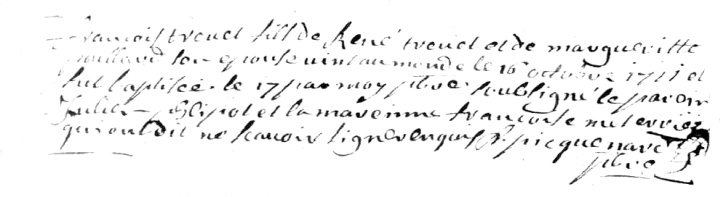 françois treuel fill de René treuel et de margueritte
son epouse vint au monde le 16 octobre 1711 et
fut baptisée le 17 par moy ptbre soubsigné le parein
Julien phlipot et la mareinne françoise
qui ont dit ne scavoir signer enquis p. picquenare
ptbre